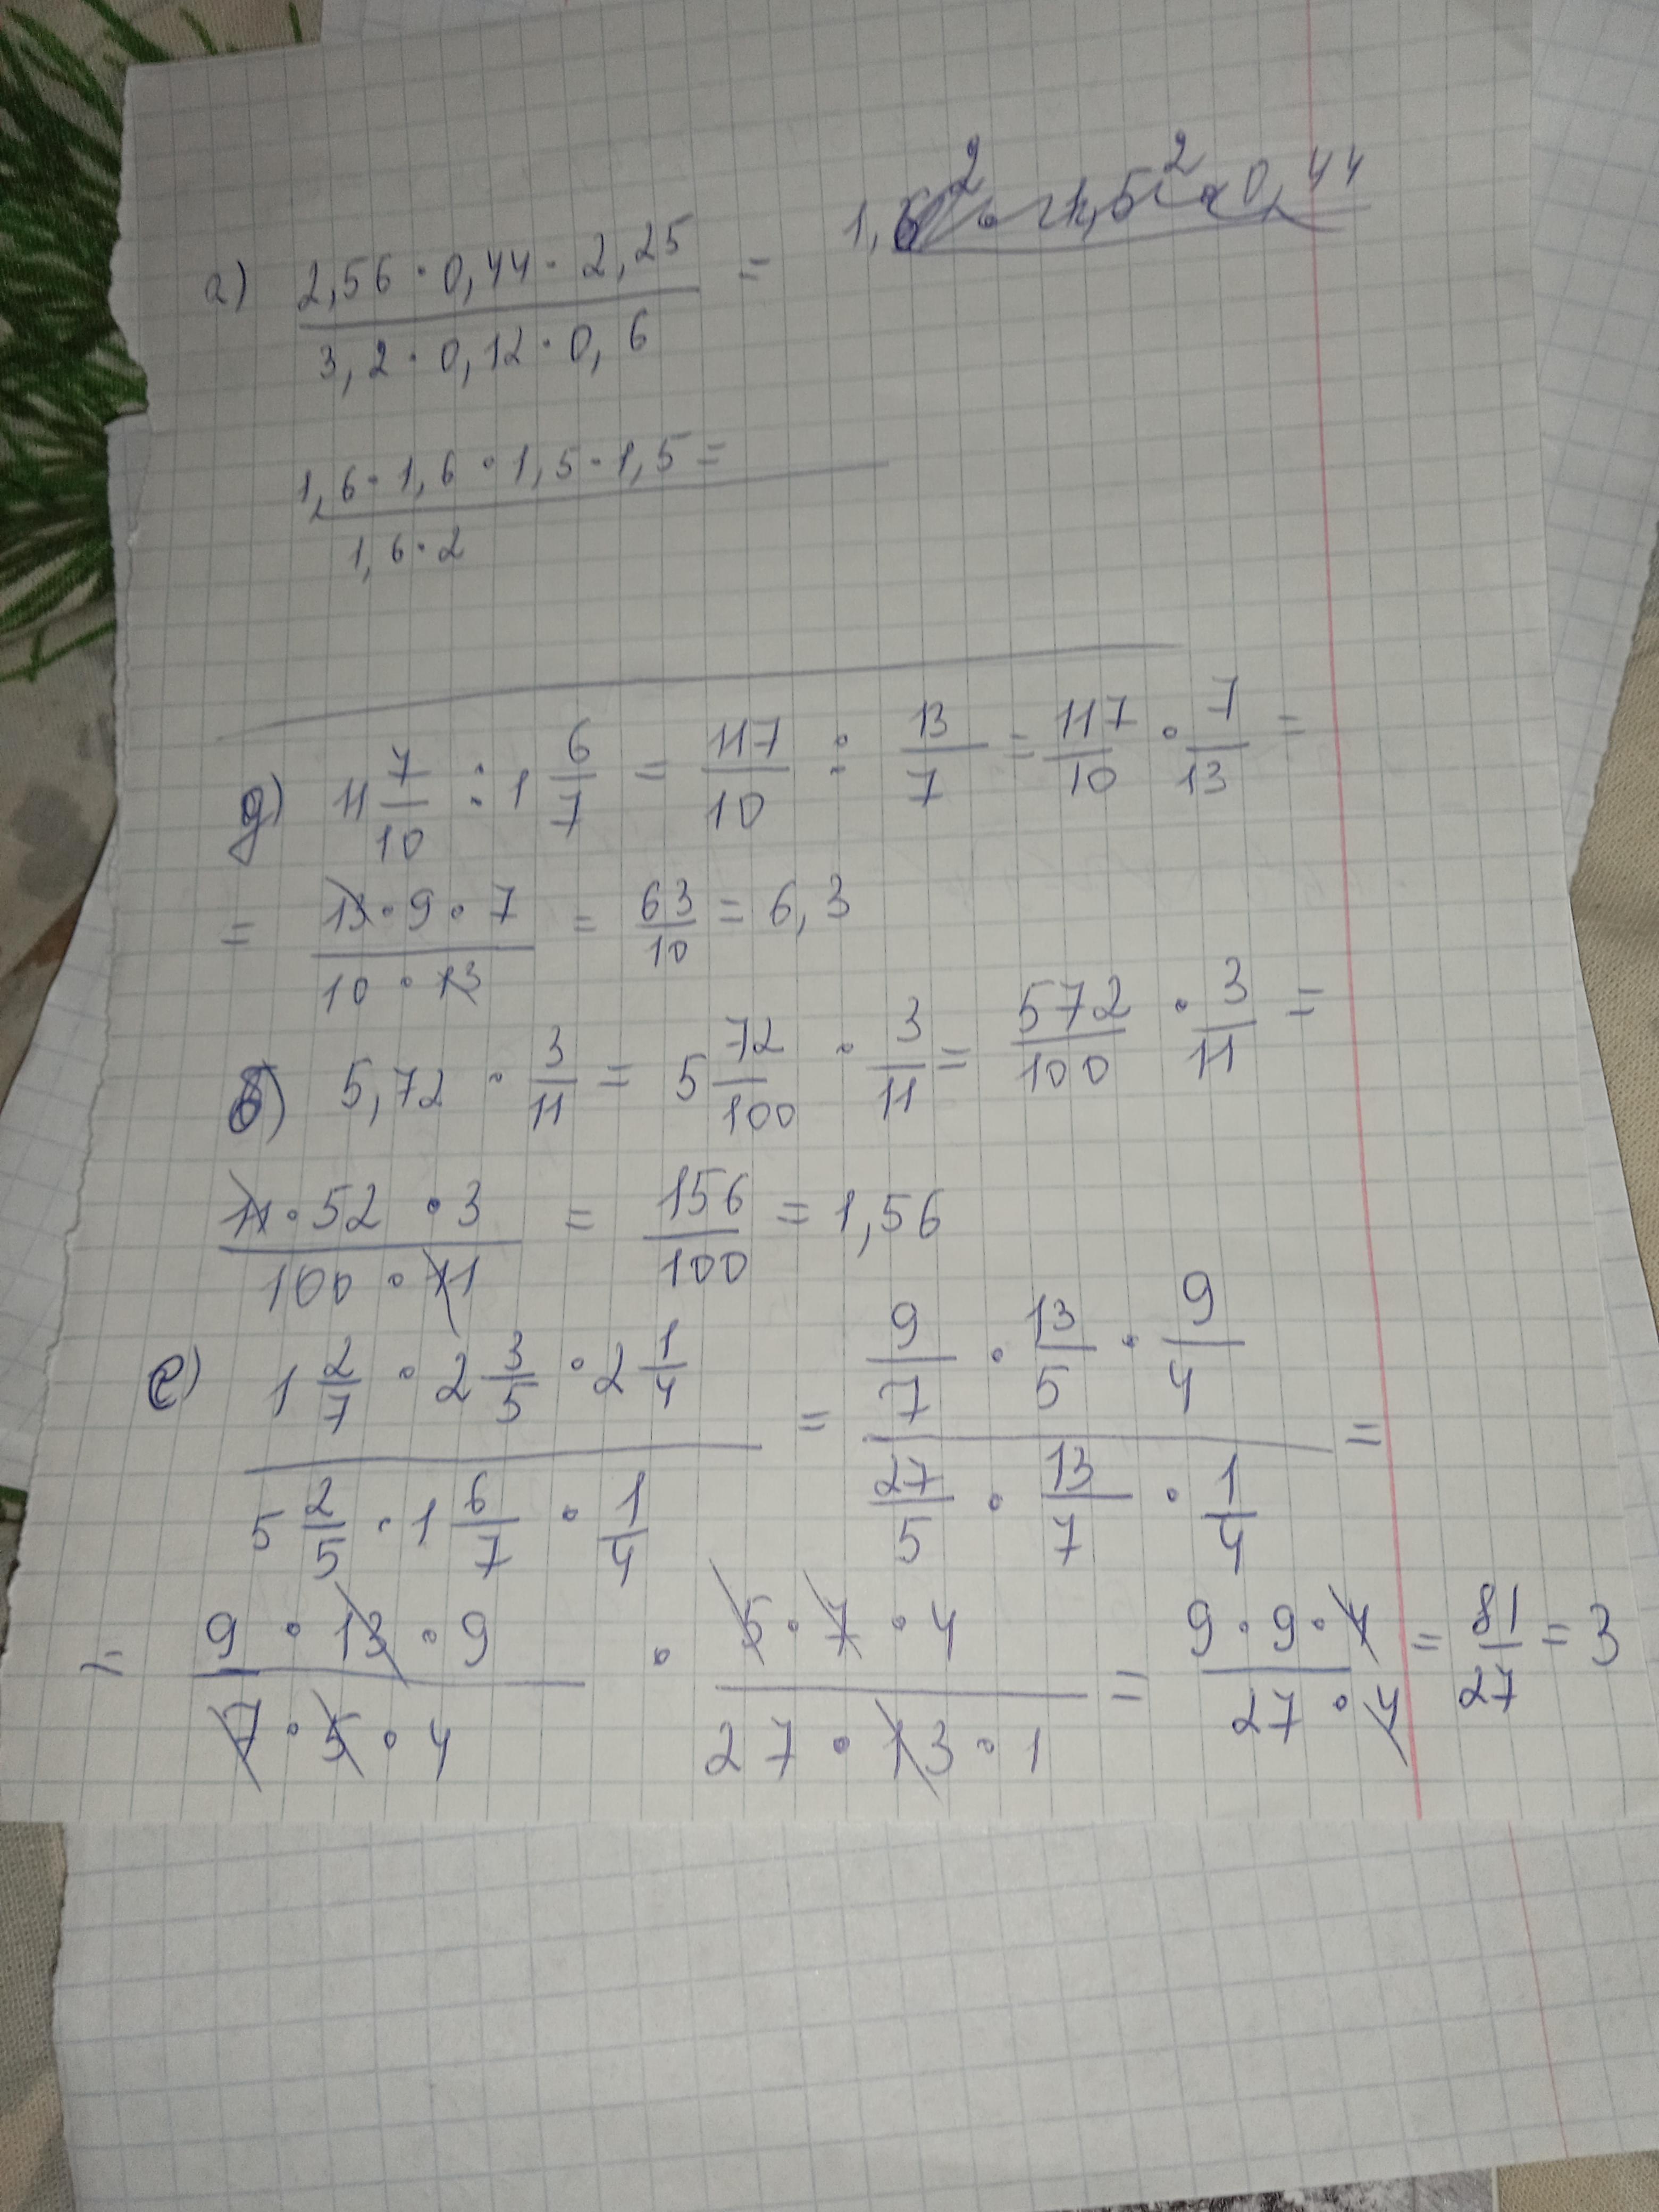 а) (2,56 · 0,44 · 2,25)/(3,2 · 0,12 · 0,6) =
(1,6 · 1,6 · 1,5 · 1,5 =)/(1,6 · 2)
д) 11 7/10 : 1 6/7 = 117/10 : 13/7 = 117/10 · 7/13 =
= (13 · 9 · 7)/(10 · 13) = 63/10 = 6,3
б) 5,72 · 3/11 = 5 72/100 · 3/11 = 572/100 · 3/11 =
(11 · 52 · 3)/(100 · 11) = 156/100 = 1,56
е) (1 2/7 · 2 3/5 · 2 1/4)/(5 2/5 · 1 6/7 · 1/4) = (9/7 · 13/5 · 9/4)/(27/5 · 13/7 · 1/4) =
= (9 · 13 · 9)/(7 · 5 · 4) · (5 · 7 · 4)/(27 · 13 · 1) = (9 · 9 · 4)/(27 · 4) = 81/27 = 3